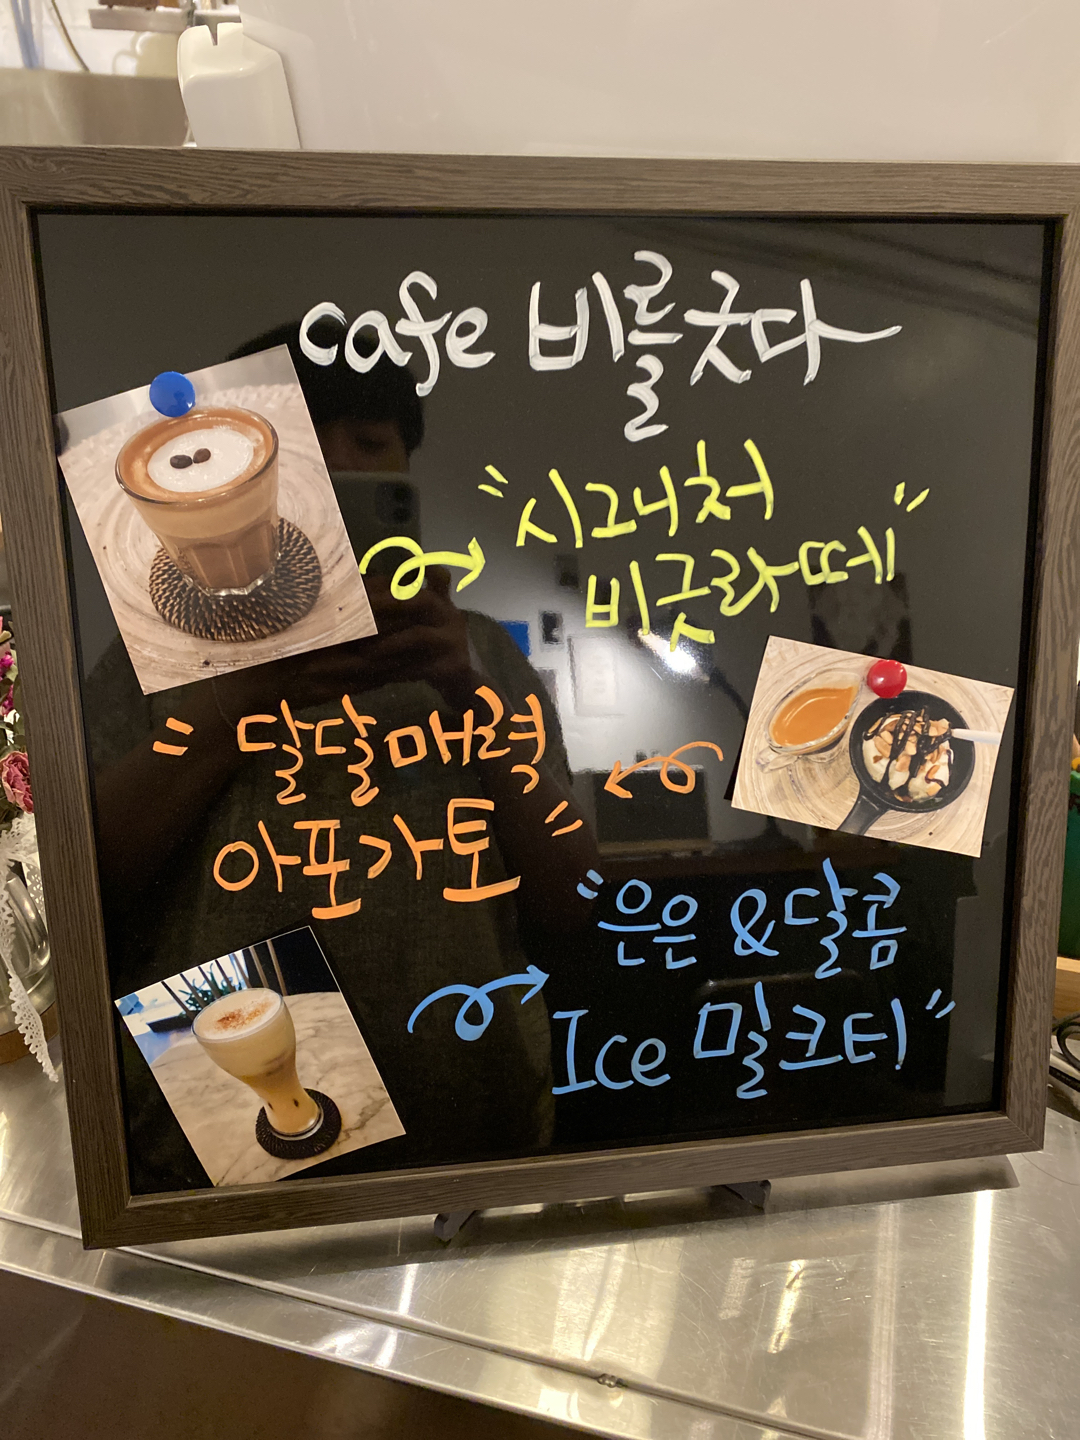 cafe 비롯긋다
"시그니처
비긋라떼"
"달달매력
아포가토"
"은은 & 달콤
Ice 밀크티"